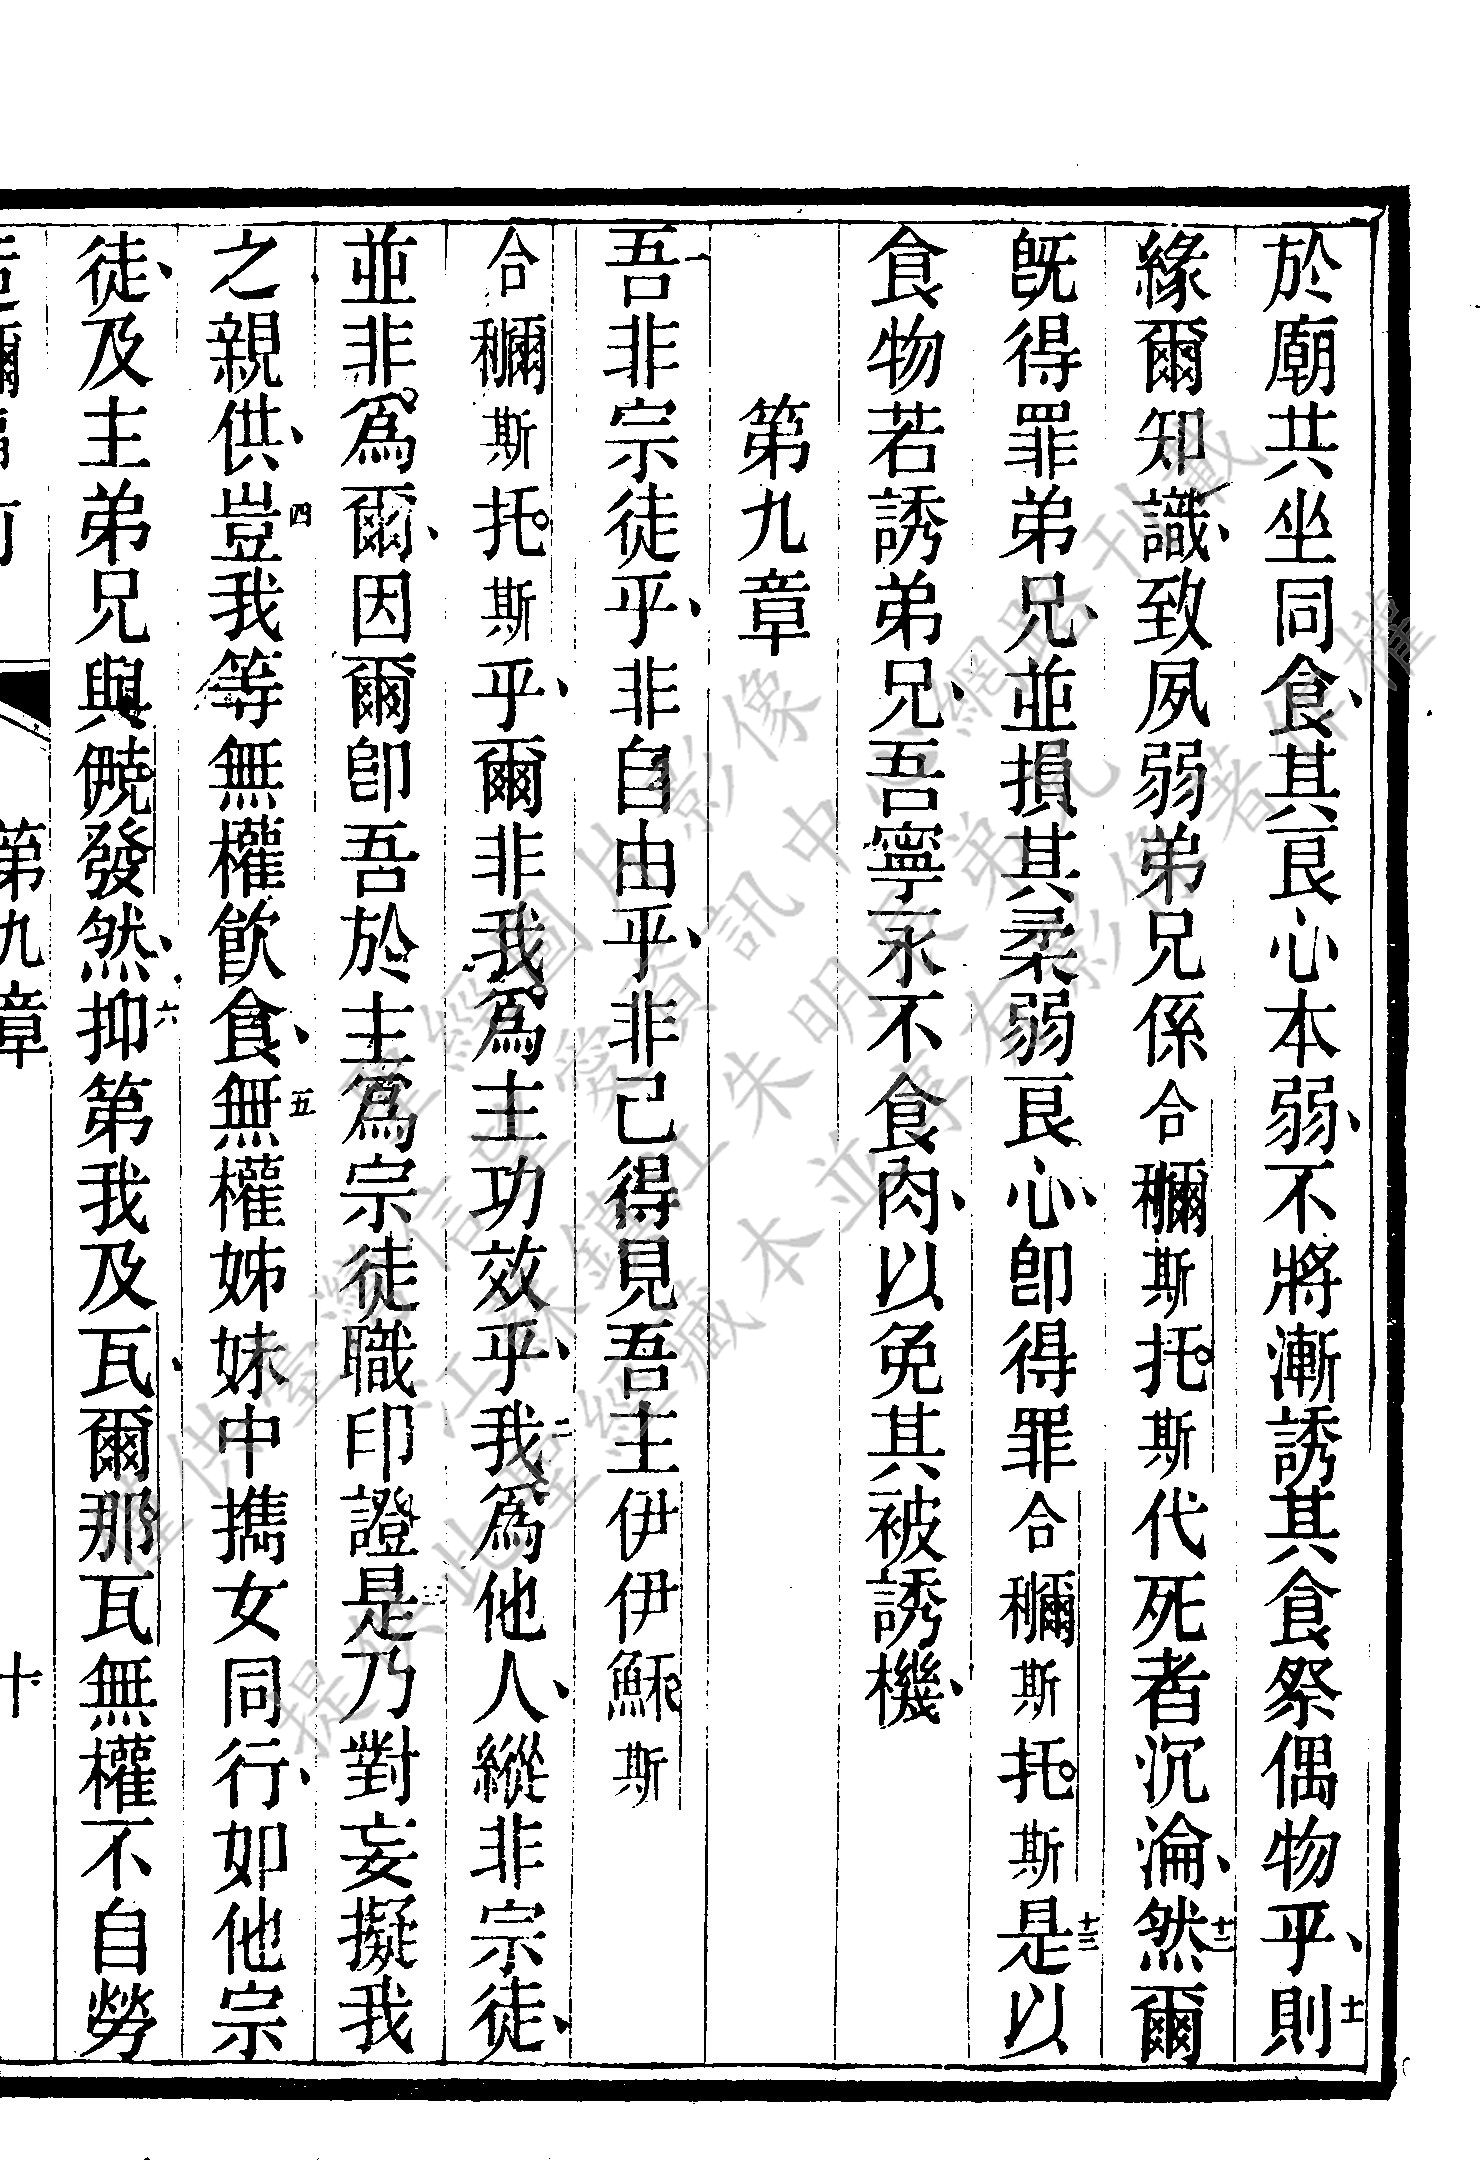 於廟共坐同食、其良心本弱、不將漸誘其食祭偶物乎、則十一
緣爾知識、致夙弱弟兄係合穪斯托斯代死者沉淪、然十二爾
旣得罪弟兄、並損其柔弱良心、卽得罪合穪斯托斯是十三以
食物若誘弟兄、吾寧永不食肉、以免其被誘機、
第九章
吾一非宗徒乎、非自由乎、非己得見吾主伊伊穌斯
合穪斯托斯乎、爾非我爲主功效乎、我二爲他人、縱非宗徒、
並非爲爾、因爾卽吾於主爲宗徒職印證是三乃對妄擬我
之親供、豈四我等無權飮食、無五權姊妹中攜女同行、如他宗
徒、及主弟兄與㒆發然、抑六第我及瓦爾那瓦無權不自勞
第九章 十